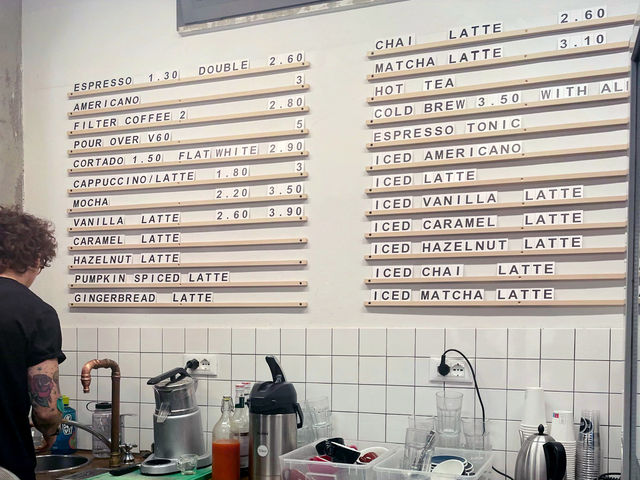 ESPRESSO 1.30 DOUBLE 2.60
AMERICANO 3
FILTER COFFEE 2 2.80
POUR OVER V60 5
CORTADO 1.50 FLAT WHITE 2.90
CAPPUCCINO/LATTE 1.80 3
MOCHA 2.20 3.50
VANILLA LATTE 2.60 3.90
CARAMEL LATTE
HAZELNUT LATTE
PUMPKIN SPICED LATTE
GINGERBREAD LATTE
CHAI LATTE 2.60
MATCHA LATTE 3.10
HOT TEA
COLD BREW 3.50 WITH
ESPRESSO TONIC
ICED AMERICANO
ICED LATTE
ICED VANILLA LATTE
ICED CARAMEL LATTE
ICED HAZELNUT LATTE
ICED CHAI LATTE
ICED MATCHA LATTE